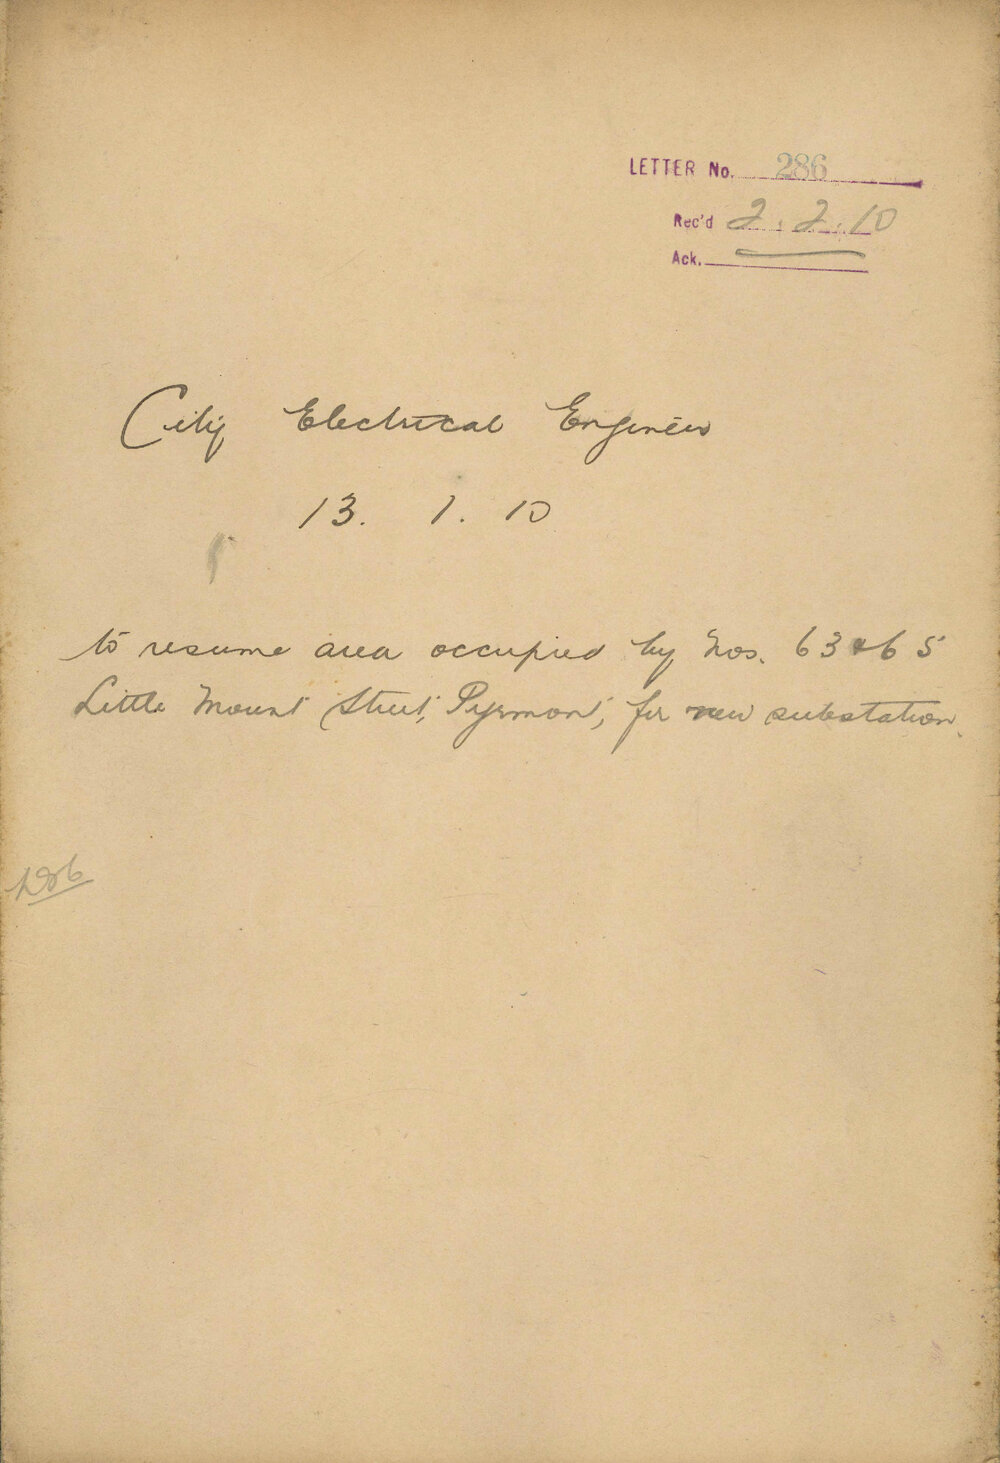 LETTER No. 286
Rec'd 2.2.10
Ack.
City Electrical Engineer
13. 1. 10
to resume area occupied by Nos. 63 & 65
Little Mount Street, Pyrmont, for new substation.